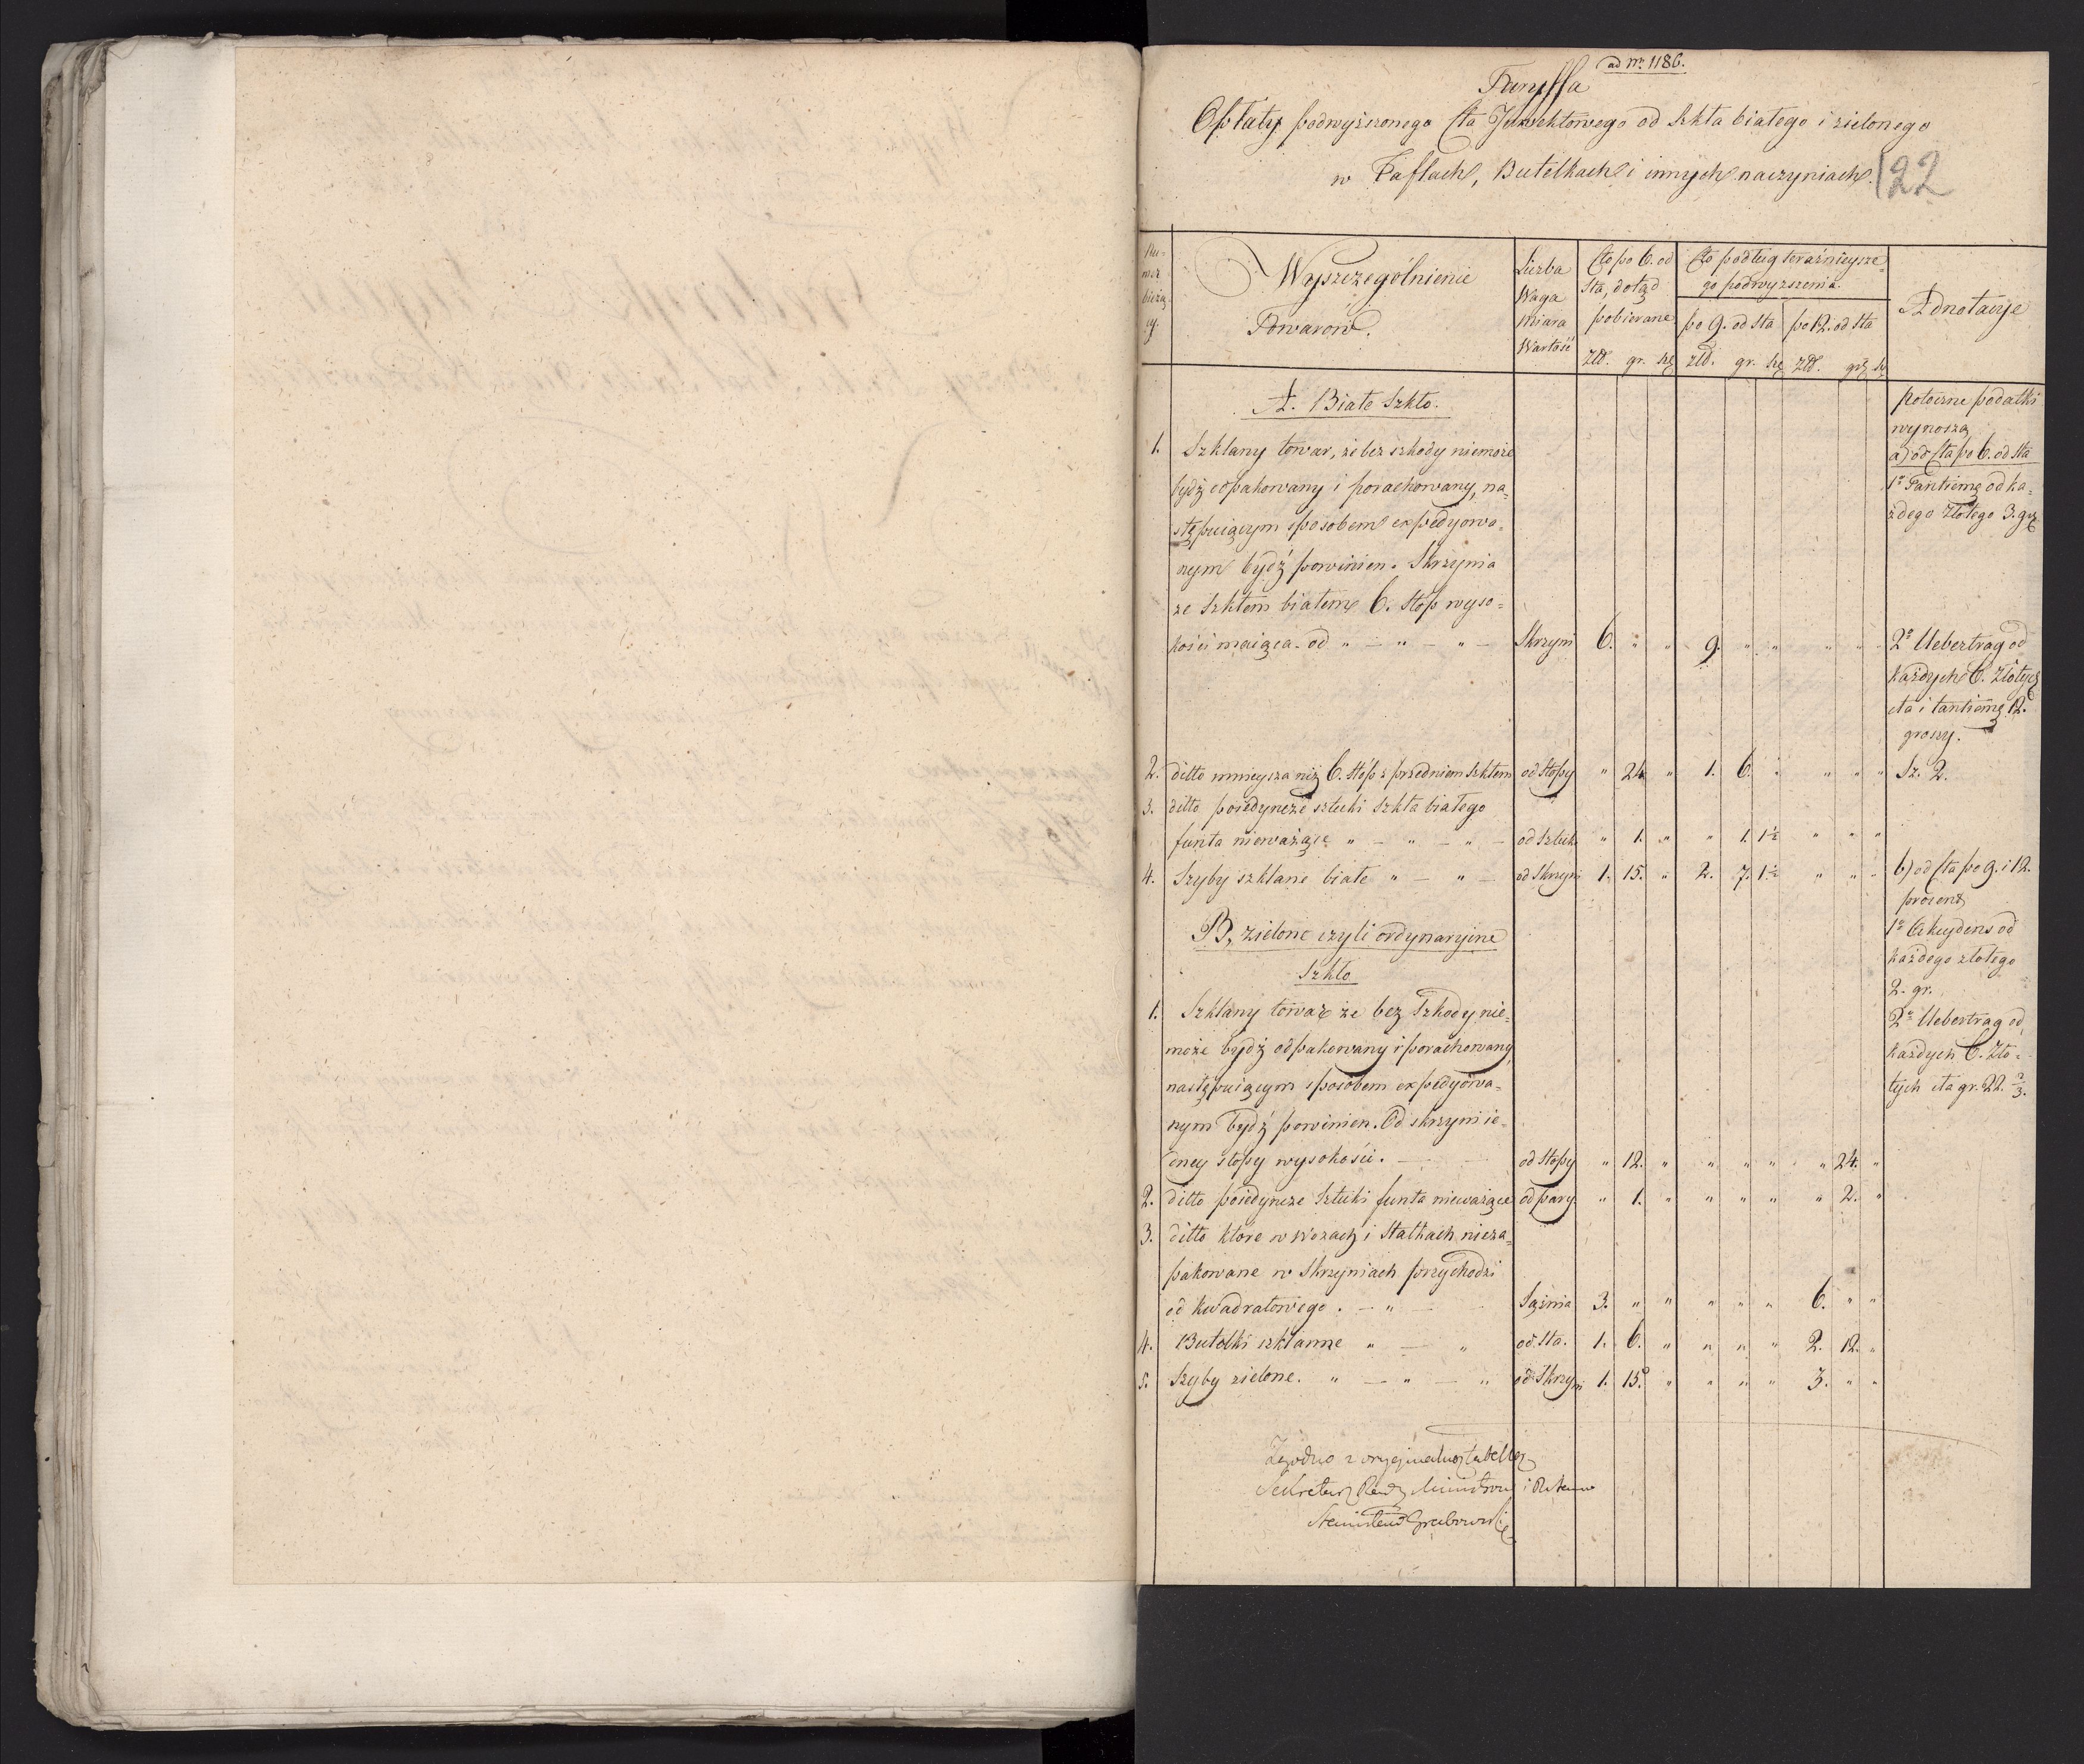 ad Nr. 1186.
Taryffa
Opłaty podwyższonego Cła Jnwektowego od Szkła białego i zielonego
w Taflach, Butelkach i innych naczyniach.
122
Nu=
mer
bieżą
cy.
Wyszczególnienie
Towarów.
Liczba
Waga
Miara
Wartość
Cło po 6. od
Sta, dotąd
pobierane
złł. gr. sz
Cło podług teraźnieysze=
go podwyższenia.
po 9. od Sta
złł. gr. sz
po 12. od Sta
złł. gr. sz
Adnotacye
A. Białe Szkło.
1. Szklany towar, że bez szkody niemoże
bydź odpakowany i porachowany, na=
stępuiącym sposobem expedyowa=
nym bydź powinien. Skrzynia
ze Szkłem białem 6. Stóp wyso=
kości maiąca. od " — " — " — Skrzyni 6. " " 9. " " " " "
2. ditto mnieysza niż 6. Stóp z przedniem szkłem od Stopy " 24. " 1. 6. " " " "
3. ditto poiedyncze sztuki Szkła białego
funta nieważące " — " — " — od Sztuk " 1. " " 1. 1½ " " "
4. Szyby szklane białe " — " — od Skrzyni 1. 15. " 2. 7. 1½ " " "
B, zielone czyli ordynaryine
Szkło
1. Szklany towar że bez Szkody nie=
może bydź odpakowany i porachowany,
następuiącym sposobem expedyowa=
nym bydź powinien. Od skrzyni ie=
dney stopy wysokości. — od Stopy " 12. " " " " " 24. "
2. ditto poiedyncze Sztuki funta nieważące od pary. " 1. " " " " " 2. "
3. ditto które w Wozach i Statkach nieza=
pakowane w Skrzyniach przychodzi
od kwadratowego. — " — Sążnia 3. " " " " " 6. " "
4. Butelki szklanne " — " od. Sta. 1. 6. " " " " 2. 12. "
5. Szyby zielone. " — " — " od Skrzyni 1. 15. " " " " 3. " "
Poboczne podatki
wynoszą
a) od Cła po 6. od Sta
1o Tantiemę od ka=
żdego Złotego 3. gr.
2o Uebertrag od
każdych 6. Złotych
cła i tantiemę 12.
groszy.
Sz. 2.
b) od Cła po 9. i 12.
procent
1o Akcydens od
każdego złotego
2. gr.
2o Uebertrag od
każdych 6. Zło=
tych cła gr. 22. ⅔.
Zgodno z oryginalną tabellą
Sekretarz Rady Ministrów
Stanisław Grabowski